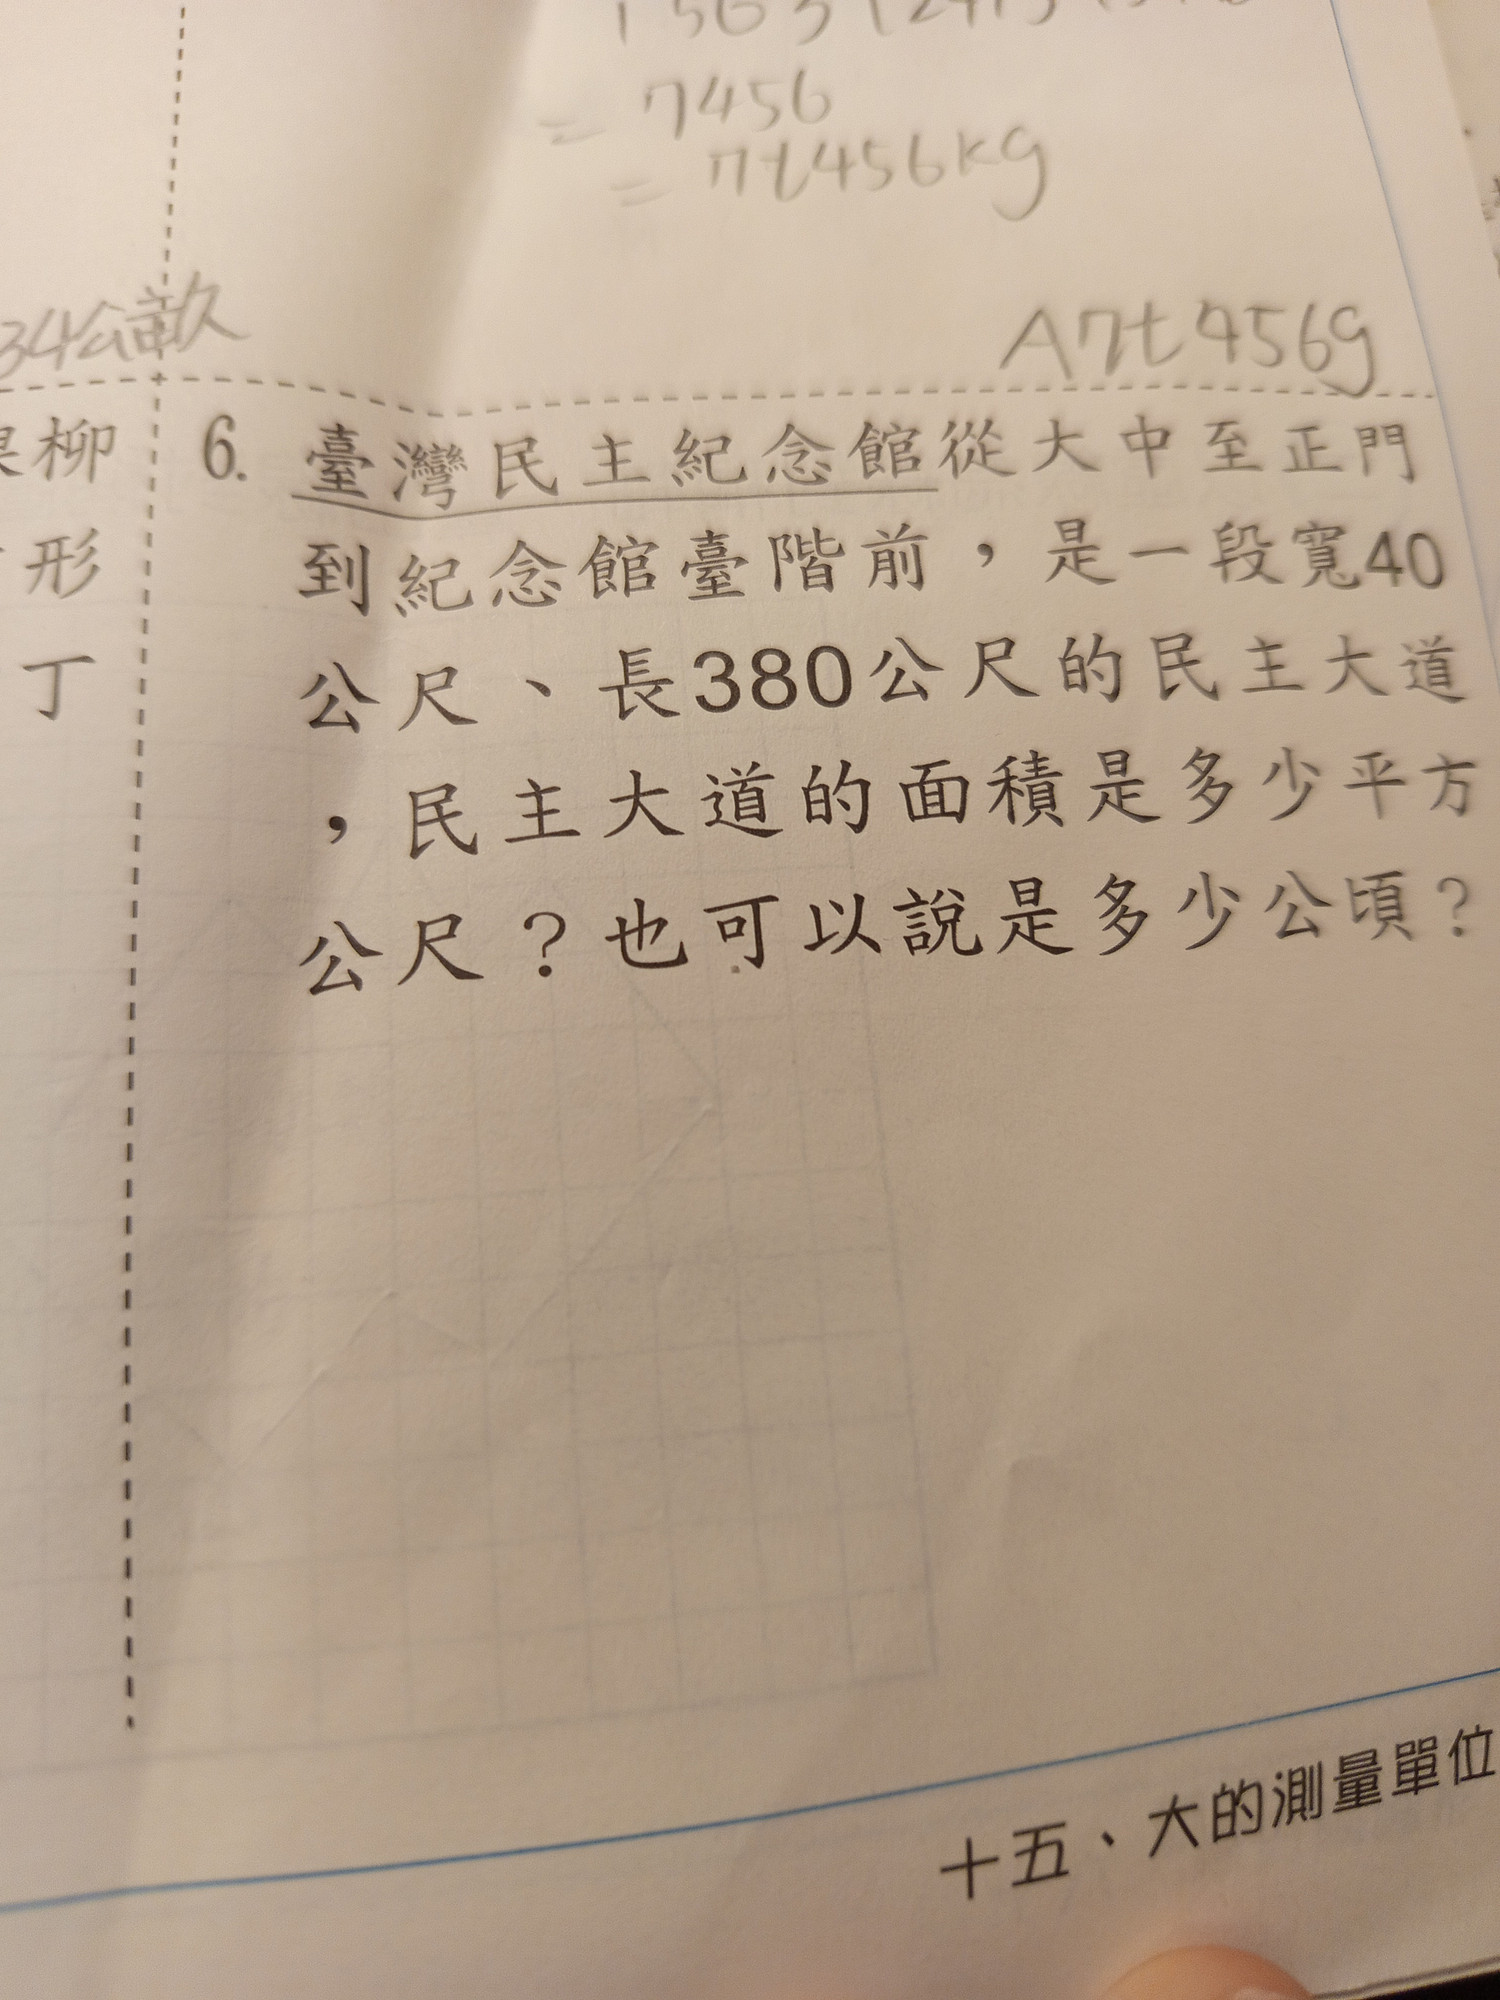 = 7456
= 7t456kg
34公畝
A7t456g
柳
形
丁
6. 臺灣民主紀念館從大中至正門
到紀念館臺階前，是一段寬40
公尺、長380公尺的民主大道
，民主大道的面積是多少平方
公尺？也可以說是多少公頃？
十五、大的測量單位